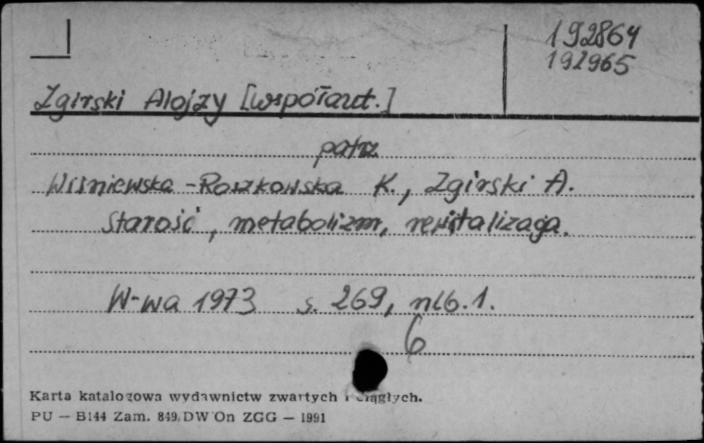 192864
192965
Zgirski Alojzy [współaut.]
patrz
Wiśniewska-Roszkowska K., Zgirski A.
Starość, metabolizm, rewitalizacja.
W-wa 1973 s. 269, nlb. 1.
6
Karta katalogowa wydawnictw zwartych i ciągłych.
PU — B144 Zam. 849. DW On ZGG — 1991